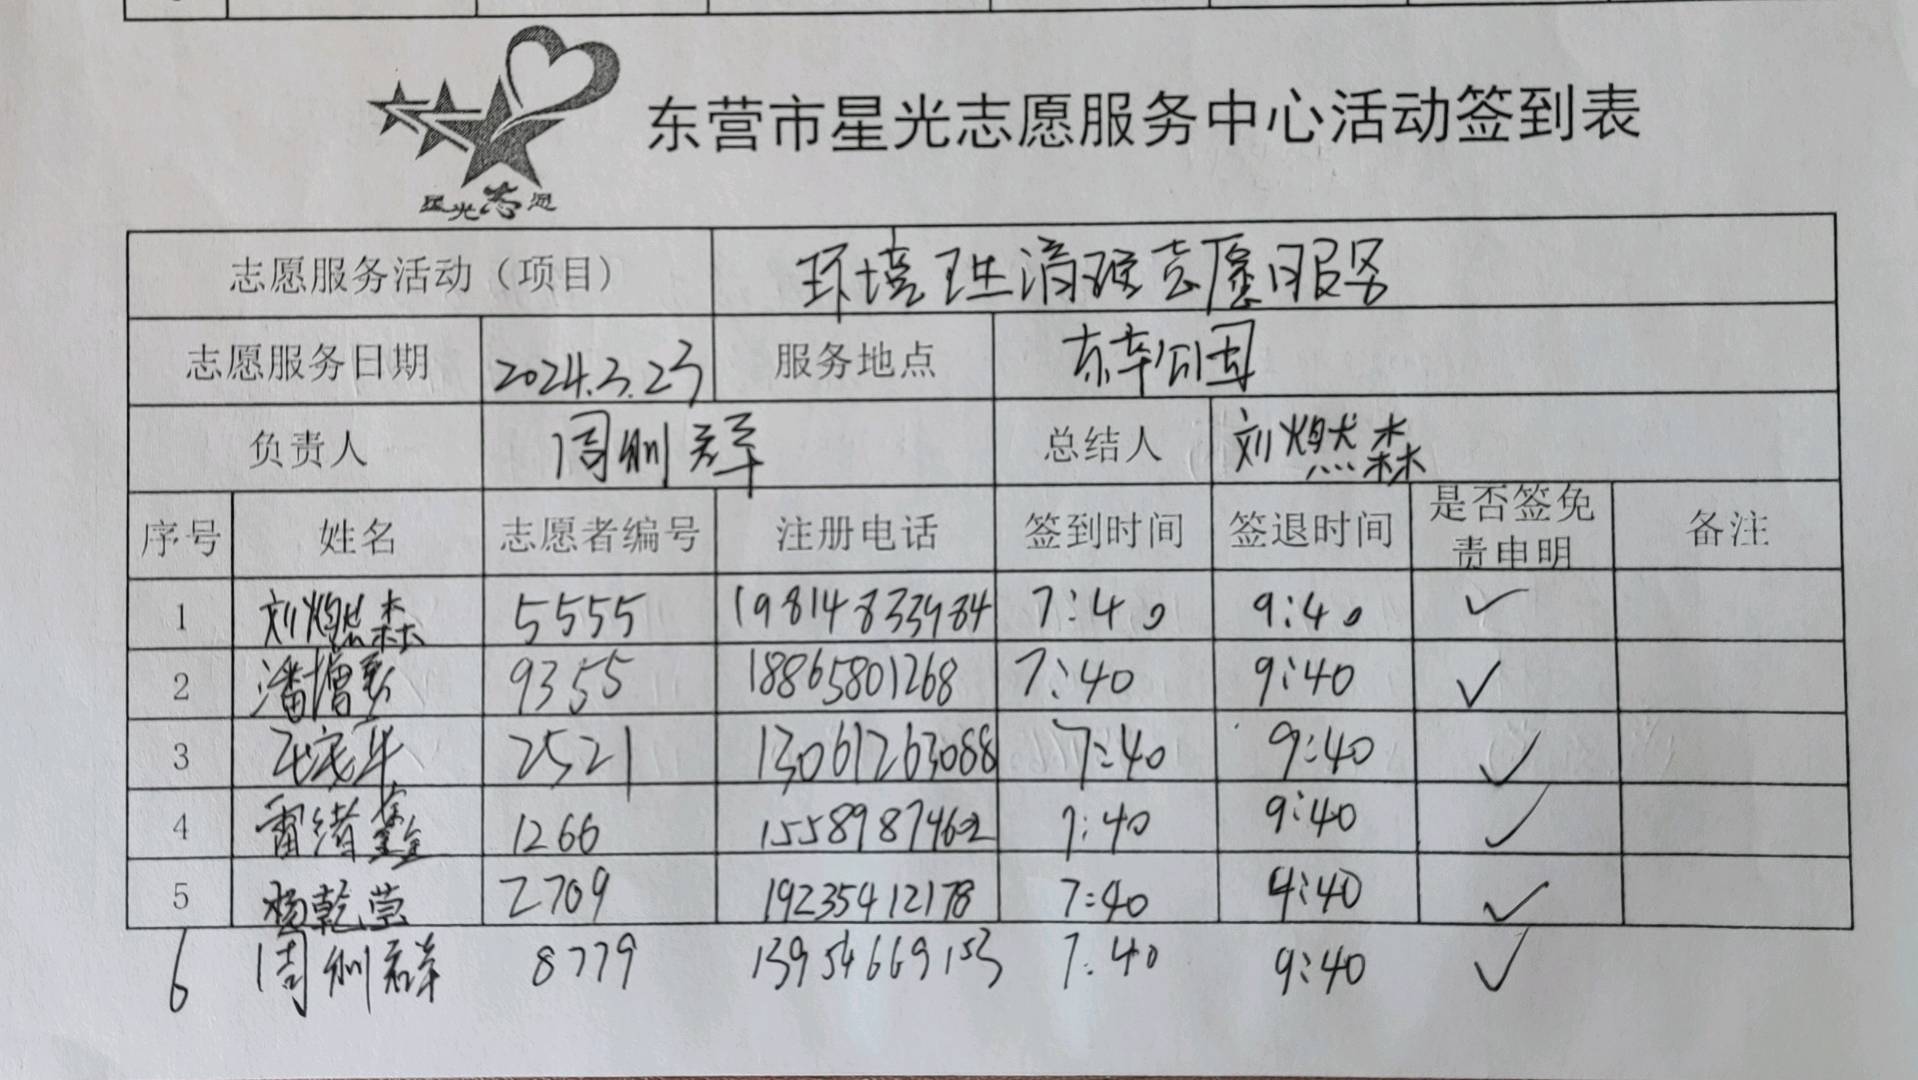 星光志愿
东营市星光志愿服务中心活动签到表
志愿服务活动（项目） 环境 清 志愿服务
志愿服务日期 2024.3.23 服务地点 东辛公园
负责人 周 群 总结人 刘燃森
序号 姓名 志愿者编号 注册电话 签到时间 签退时间 是否签免责申明 备注
1 刘燃森 5555 19814833984 7:40 9:40 ✓
2 潘增 9355 18865801268 7:40 9:40 ✓
3 2521 13061263088 7:40 9:40 ✓
4 雷绪鑫 1266 15589874602 7:40 9:40 ✓
5 杨乾莹 2709 19235412178 7:40 4:40 ✓
6 周 群 8779 13954669153 7:40 9:40 ✓